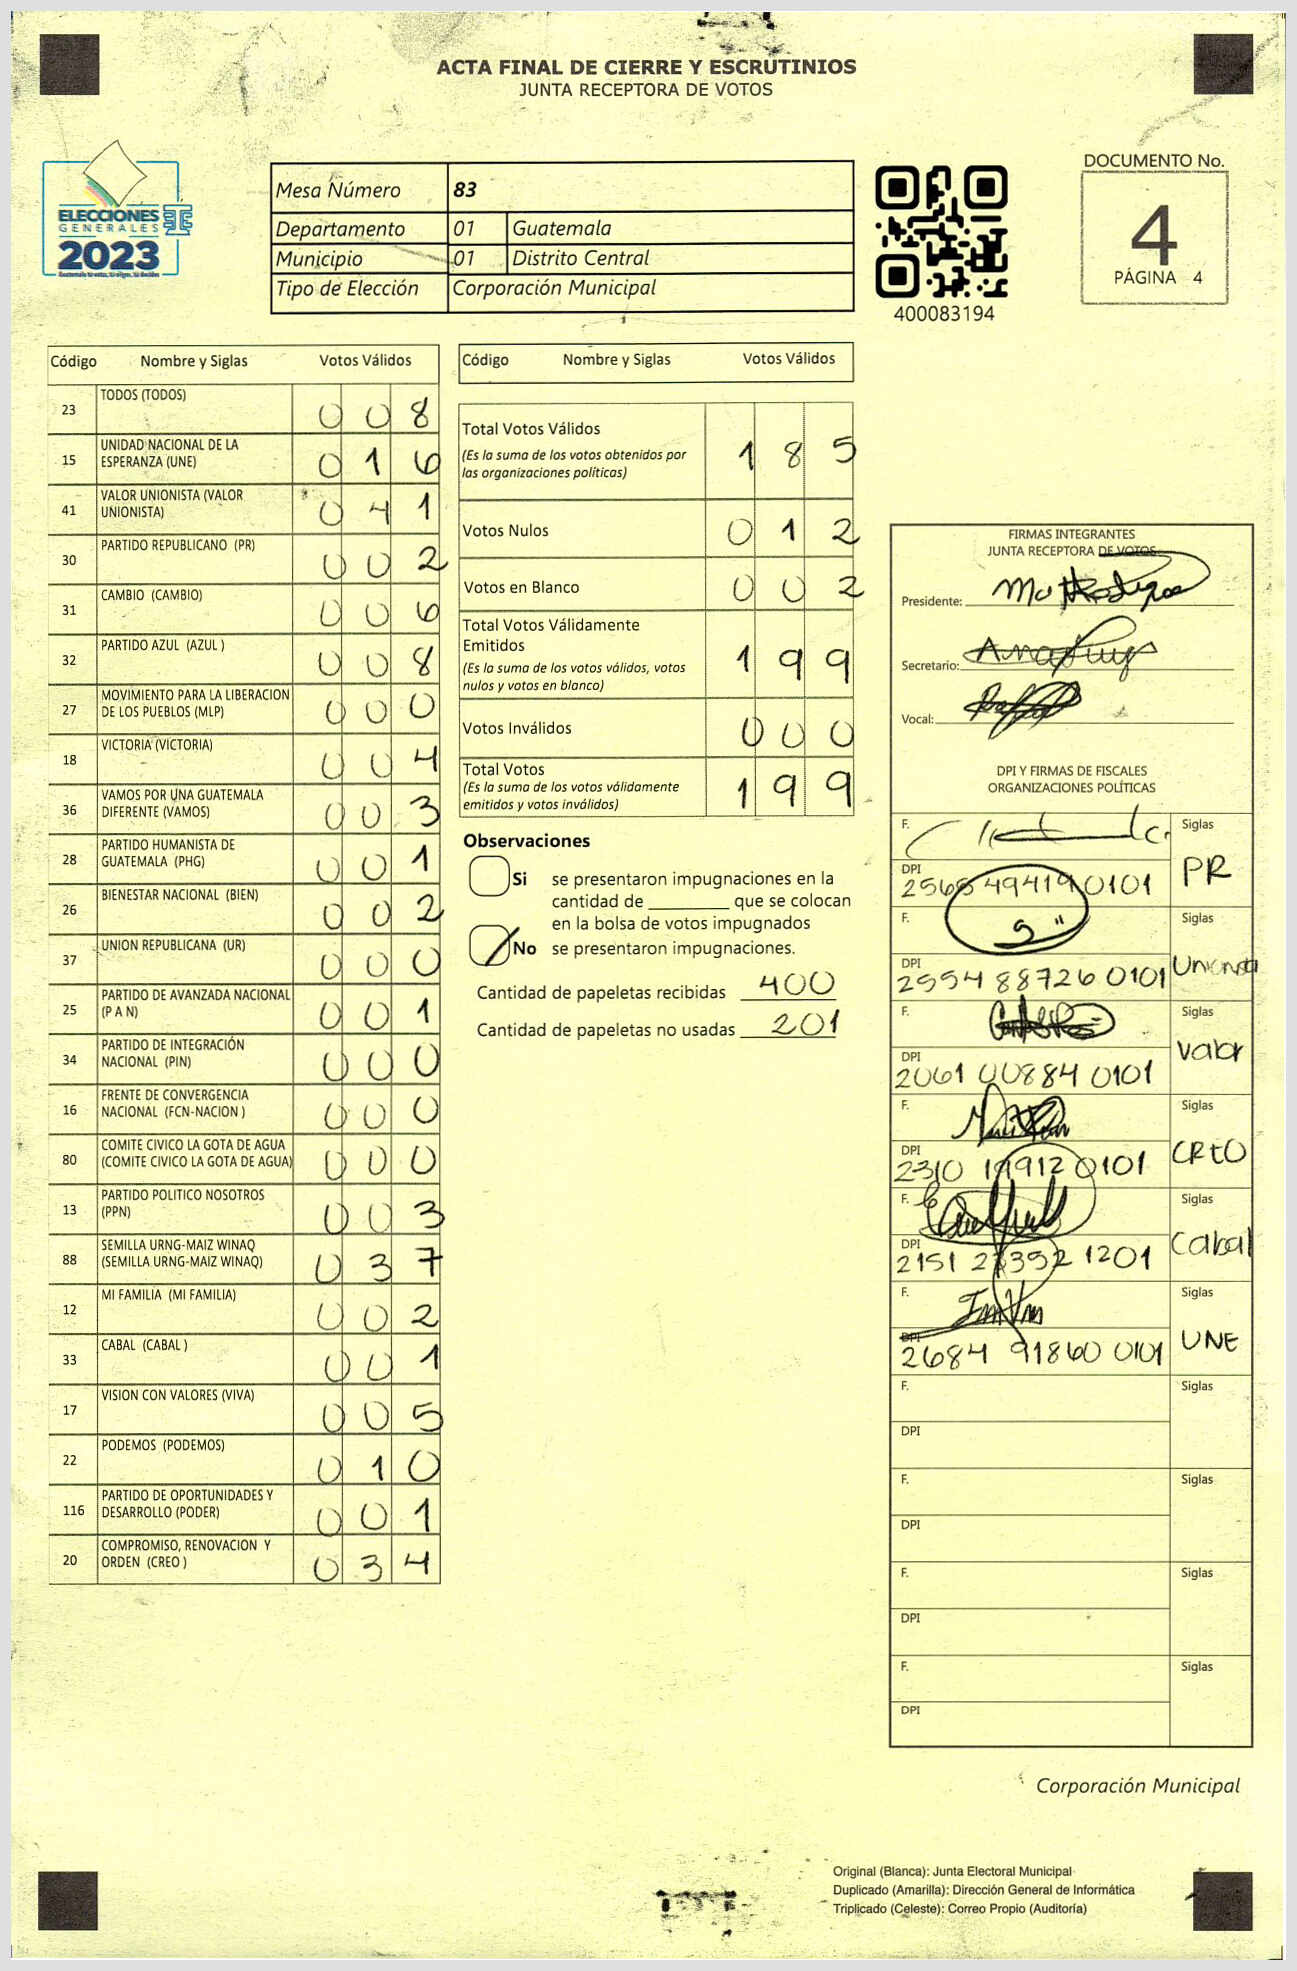 ACTA FINAL DE CIERRE Y ESCRUTINIOS
JUNTA RECEPTORA DE VOTOS
ELECCIONES
GENERALES
2023
Mesa Número 83
Departamento 01 Guatemala
Municipio 01 Distrito Central
Tipo de Elección Corporación Municipal
400083194
DOCUMENTO No.
4
PÁGINA 4
Código Nombre y Siglas Votos Válidos
23 TODOS (TODOS) 0 0 8
15 UNIDAD NACIONAL DE LA
ESPERANZA (UNE) 0 1 6
41 VALOR UNIONISTA (VALOR
UNIONISTA) 0 4 1
30 PARTIDO REPUBLICANO (PR) 0 0 2
31 CAMBIO (CAMBIO) 0 0 6
32 PARTIDO AZUL (AZUL ) 0 0 8
27 MOVIMIENTO PARA LA LIBERACION
DE LOS PUEBLOS (MLP) 0 0 0
18 VICTORIA (VICTORIA) 0 0 4
36 VAMOS POR UNA GUATEMALA
DIFERENTE (VAMOS) 0 0 3
28 PARTIDO HUMANISTA DE
GUATEMALA (PHG) 0 0 1
26 BIENESTAR NACIONAL (BIEN) 0 0 2
37 UNION REPUBLICANA (UR) 0 0 0
25 PARTIDO DE AVANZADA NACIONAL
(P A N) 0 0 1
34 PARTIDO DE INTEGRACIÓN
NACIONAL (PIN) 0 0 0
16 FRENTE DE CONVERGENCIA
NACIONAL (FCN-NACION ) 0 0 0
80 COMITE CIVICO LA GOTA DE AGUA
(COMITE CIVICO LA GOTA DE AGUA) 0 0 0
13 PARTIDO POLITICO NOSOTROS
(PPN) 0 0 3
88 SEMILLA URNG-MAIZ WINAQ
(SEMILLA URNG-MAIZ WINAQ) 0 3 7
12 MI FAMILIA (MI FAMILIA) 0 0 2
33 CABAL (CABAL ) 0 0 1
17 VISION CON VALORES (VIVA) 0 0 5
22 PODEMOS (PODEMOS) 0 1 0
116 PARTIDO DE OPORTUNIDADES Y
DESARROLLO (PODER) 0 0 1
20 COMPROMISO, RENOVACION Y
ORDEN (CREO ) 0 3 4
Código Nombre y Siglas Votos Válidos
Total Votos Válidos 1 8 5
(Es la suma de los votos obtenidos por
las organizaciones políticas)
Votos Nulos 0 1 2
Votos en Blanco 0 0 2
Total Votos Válidamente
Emitidos 1 9 9
(Es la suma de los votos válidos, votos
nulos y votos en blanco)
Votos Inválidos 0 0 0
Total Votos 1 9 9
(Es la suma de los votos válidamente
emitidos y votos inválidos)
Observaciones
Si se presentaron impugnaciones en la
cantidad de ________ que se colocan
en la bolsa de votos impugnados
No se presentaron impugnaciones.
Cantidad de papeletas recibidas 400
Cantidad de papeletas no usadas 201
FIRMAS INTEGRANTES
JUNTA RECEPTORA DE VOTOS
Presidente:
Secretario:
Vocal:
DPI Y FIRMAS DE FISCALES
ORGANIZACIONES POLÍTICAS
F. Siglas
PR
DPI
2565 49419 0101
F. Siglas
Unionista
DPI
2554 88726 0101
F. Siglas
Valor
DPI
2061 00884 0101
F. Siglas
CREO
DPI
2310 19912 0101
F. Siglas
Cabal
DPI
2151 27352 1201
F. Siglas
UNE
DPI
2684 91860 0101
F. Siglas
DPI
F. Siglas
DPI
F. Siglas
DPI
F. Siglas
DPI
Corporación Municipal
Original (Blanca): Junta Electoral Municipal
Duplicado (Amarilla): Dirección General de Informática
Triplicado (Celeste): Correo Propio (Auditoría)